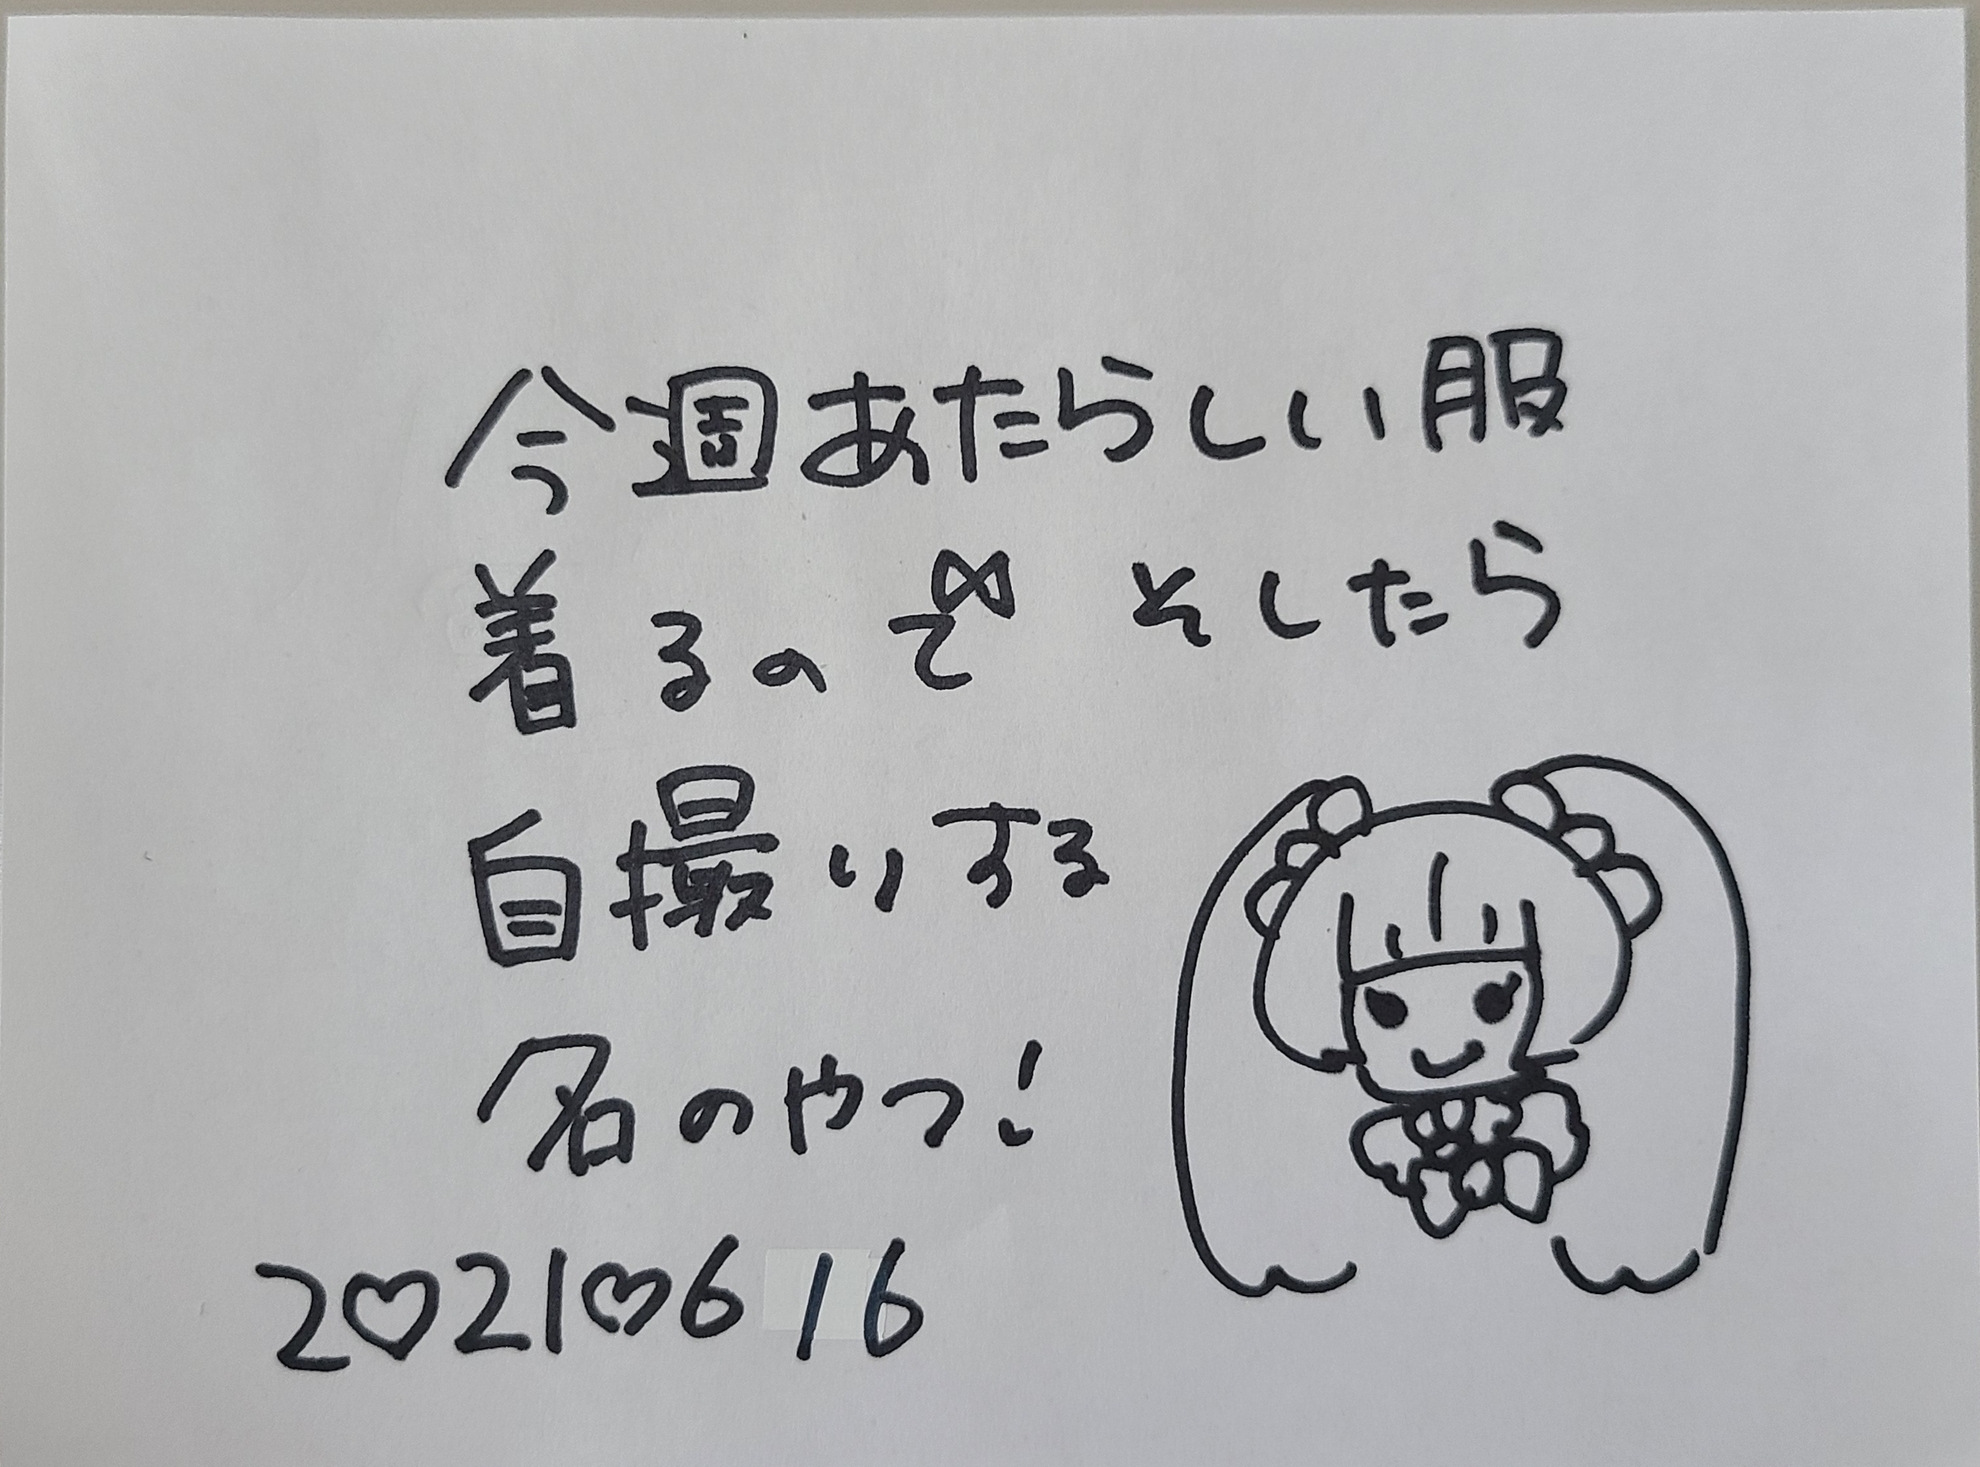 今週あたらしい服
着るので そしたら
自撮りする
名のやつ!
2♡21♡6 16